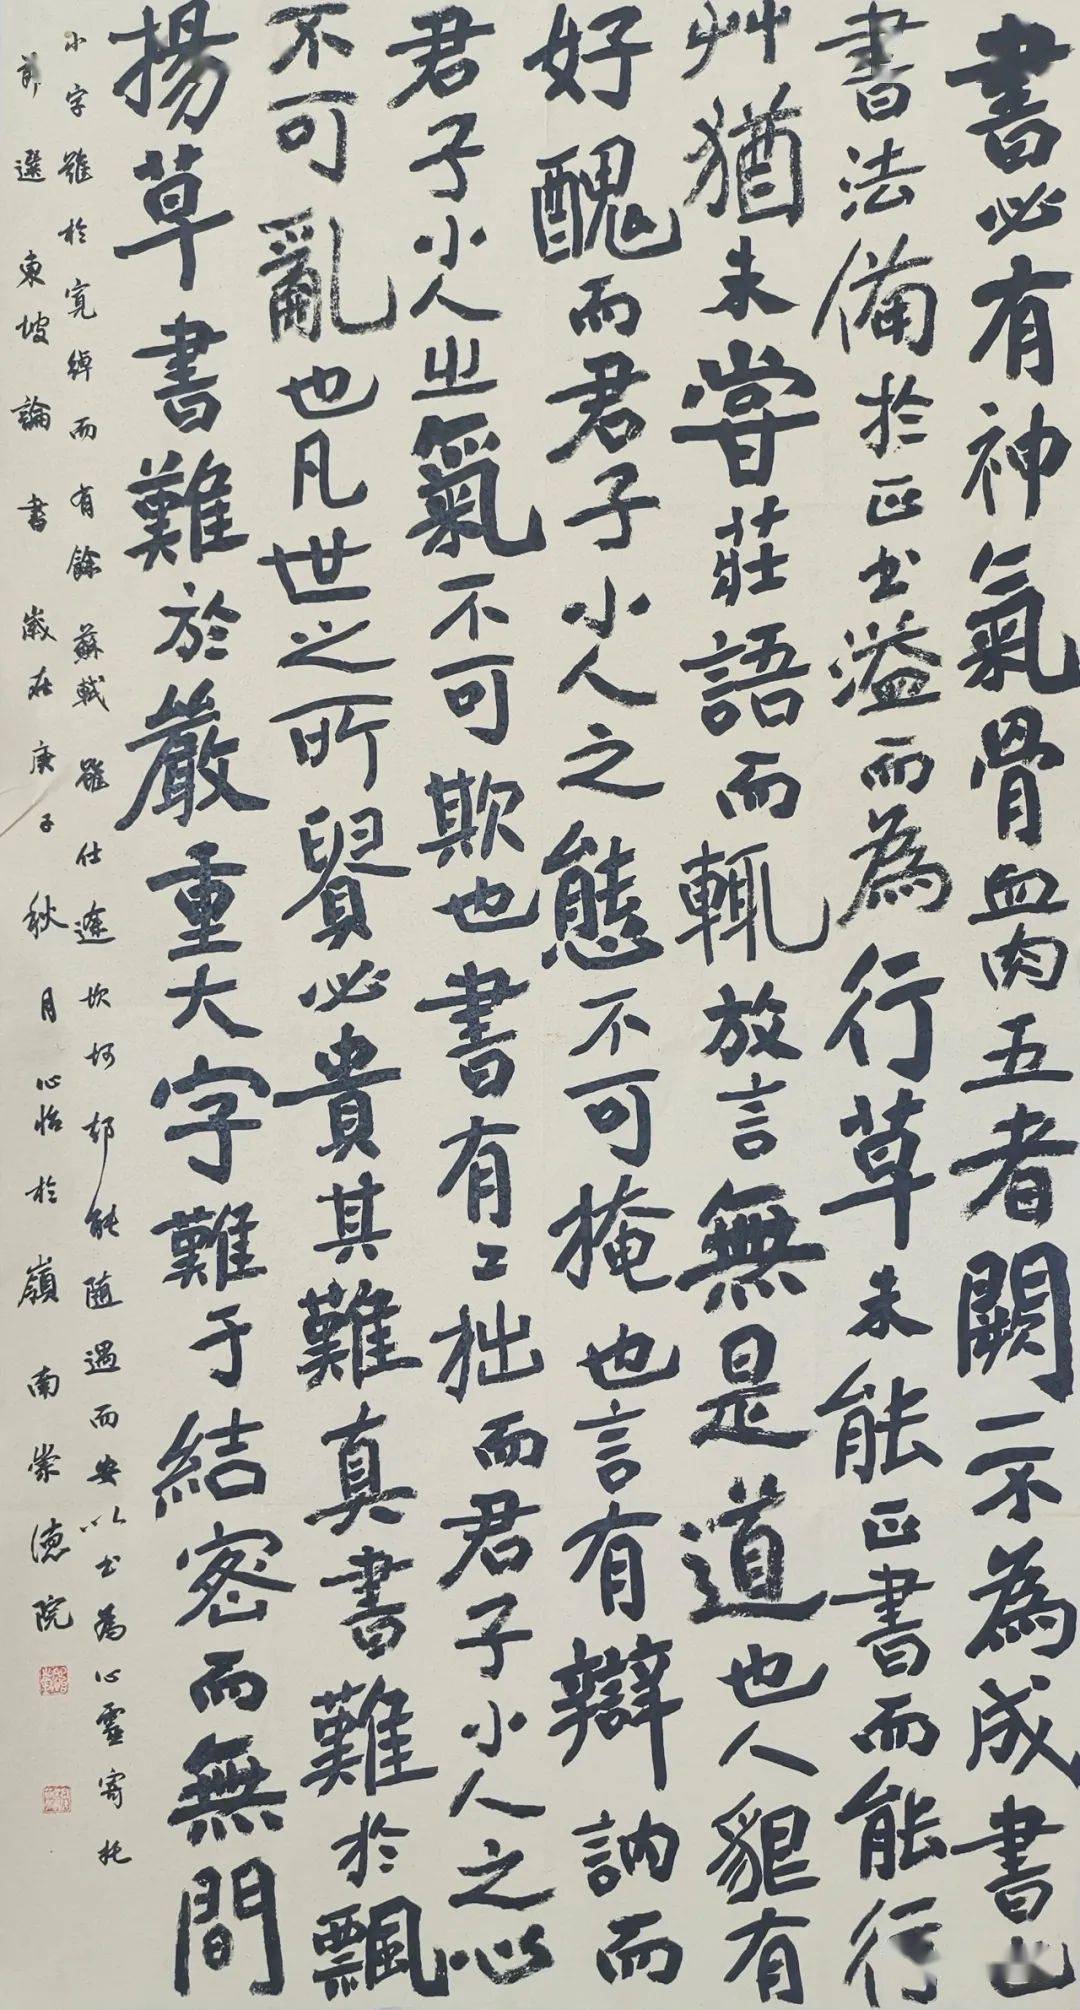 書必有神氣骨血肉五者闕一不為成書也
書法備於正書溢而為行草未能正書而能行
艸猶未嘗莊語而輒放言無是道也人貌有
好醜而君子小人之態不可掩也言有辯訥而
君子小人之氣不可欺也書有工拙而君子小人之心
不可亂也凡世之所貴必貴其難真書難於飄
揚草書難於嚴重大字難于結密而無間
小字難於寬綽而有餘蘇軾雖仕途坎坷却能隨遇而安以書為心靈寄托
節選東坡論書歲在庚子秋月心怡於嶺南崇德院